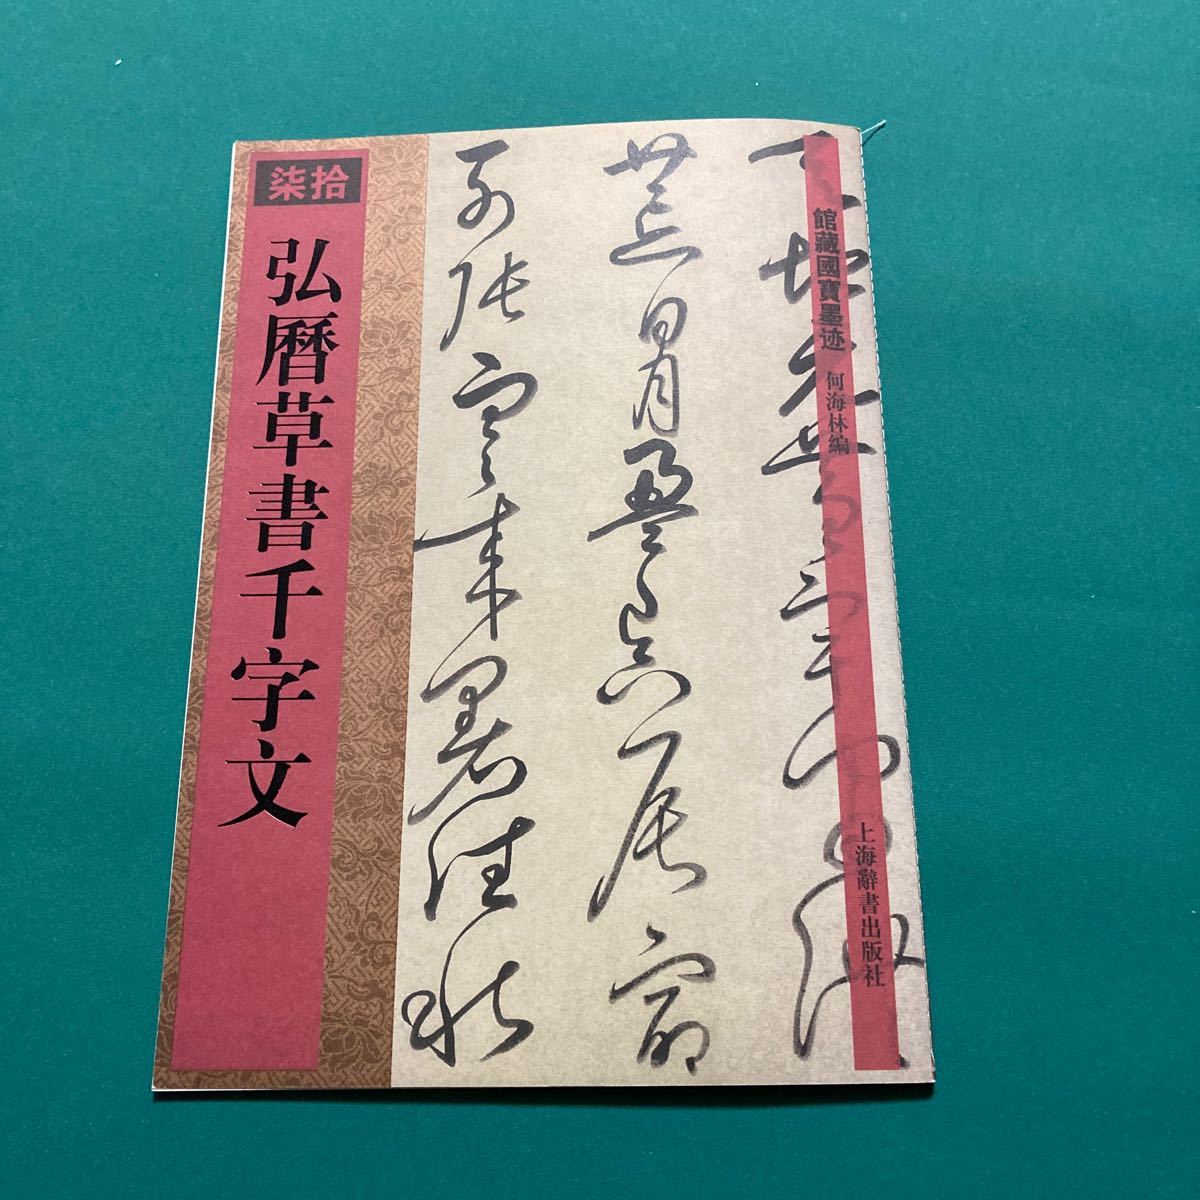 柒拾
弘曆草書千字文
館藏國寶墨迹 何海林編
上海辭書出版社
天地玄黃宇宙洪
荒日月盈昃辰宿
列張寒來暑往秋